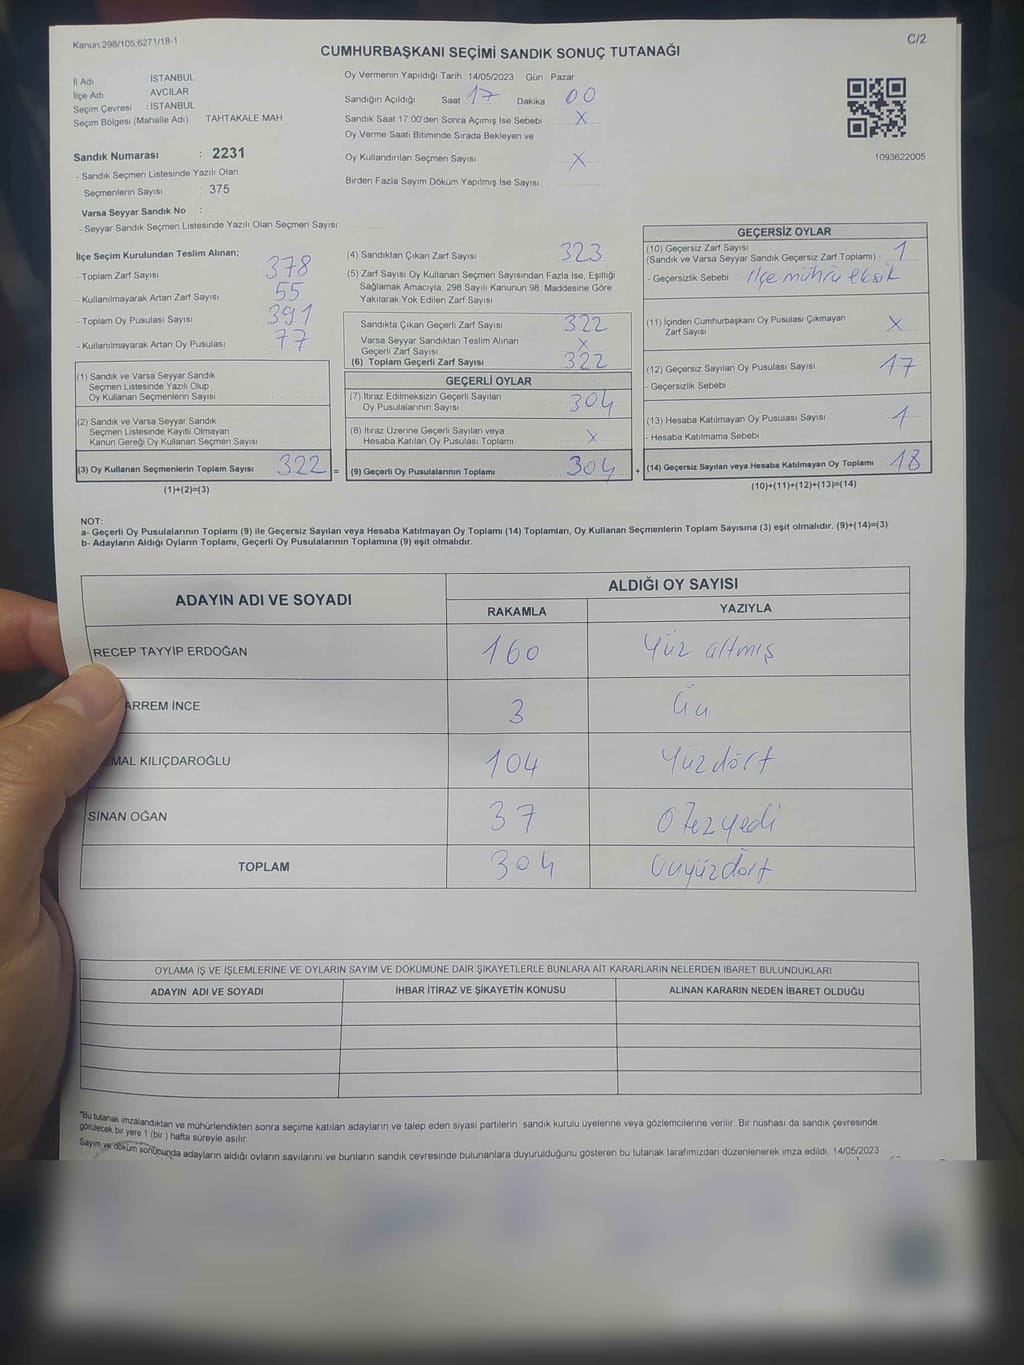 Kanun;298/105,6271/18-1
C/2
CUMHURBAŞKANI SEÇİMİ SANDIK SONUÇ TUTANAĞI
İl Adı İSTANBUL
İlçe Adı AVCILAR
Seçim Çevresi : İSTANBUL
Seçim Bölgesi (Mahalle Adı) TAHTAKALE MAH.
Sandık Numarası : 2231
- Sandık Seçmen Listesinde Yazılı Olan
Seçmenlerin Sayısı : 375
Varsa Seyyar Sandık No :
- Seyyar Sandık Seçmen Listesinde Yazılı Olan Seçmen Sayısı:
Oy Vermenin Yapıldığı Tarih : 14/05/2023 Gün : Pazar
Sandığın Açıldığı Saat 17 Dakika 00
Sandık Saat 17.00'den Sonra Açımış İse Sebebi : X
Oy Verme Saati Bitiminde Sırada Bekleyen ve
Oy Kullandırılan Seçmen Sayısı X
Birden Fazla Sayım Döküm Yapılmış İse Sayısı :
1093622005
İlçe Seçim Kurulundan Teslim Alınan;
- Toplam Zarf Sayısı 378
- Kullanılmayarak Artan Zarf Sayısı 55
- Toplam Oy Pusulası Sayısı 391
- Kullanılmayarak Artan Oy Pusulası 77
(1) Sandık ve Varsa Seyyar Sandık
Seçmen Listesinde Yazılı Olup
Oy Kullanan Seçmenlerin Sayısı
(2) Sandık ve Varsa Seyyar Sandık
Seçmen Listesinde Kayıtlı Olmayan
Kanun Gereği Oy Kullanan Seçmen Sayısı
(3) Oy Kullanan Seçmenlerin Toplam Sayısı 322 =
(1)+(2)=(3)
(4) Sandıktan Çıkan Zarf Sayısı 323
(5) Zarf Sayısı Oy Kullanan Seçmen Sayısından Fazla İse, Eşitliği
Sağlamak Amacıyla, 298 Sayılı Kanunun 98. Maddesine Göre
Yakılarak Yok Edilen Zarf Sayısı
Sandıkta Çıkan Geçerli Zarf Sayısı 322
Varsa Seyyar Sandıktan Teslim Alınan
Geçerli Zarf Sayısı X
(6) Toplam Geçerli Zarf Sayısı 322
GEÇERLİ OYLAR
(7) İtiraz Edilmeksizin Geçerli Sayılan
Oy Pusulalarının Sayısı 304
(8) İtiraz Üzerine Geçerli Sayılan veya
Hesaba Katılan Oy Pusulası Toplamı X
(9) Geçerli Oy Pusulalarının Toplamı 304 +
GEÇERSİZ OYLAR
(10) Geçersiz Zarf Sayısı
(Sandık ve Varsa Seyyar Sandık Geçersiz Zarf Toplamı) : 1
- Geçersizlik Sebebi : İlçe mührü eksik
(11) İçinden Cumhurbaşkanı Oy Pusulası Çıkmayan
Zarf Sayısı X
(12) Geçersiz Sayılan Oy Pusulası Sayısı 17
- Geçersizlik Sebebi
(13) Hesaba Katılmayan Oy Pusulası Sayısı 1
- Hesaba Katılmama Sebebi
(14) Geçersiz Sayılan veya Hesaba Katılmayan Oy Toplamı 18
(10)+(11)+(12)+(13)=(14)
NOT:
a- Geçerli Oy Pusulalarının Toplamı (9) ile Geçersiz Sayılan veya Hesaba Katılmayan Oy Toplamı (14) Toplamları, Oy Kullanan Seçmenlerin Toplam Sayısına (3) eşit olmalıdır. (9)+(14)=(3)
b- Adayların Aldığı Oyların Toplamı, Geçerli Oy Pusulalarının Toplamına (9) eşit olmalıdır.
ADAYIN ADI VE SOYADI
ALDIĞI OY SAYISI
RAKAMLA YAZIYLA
RECEP TAYYİP ERDOĞAN 160 Yüz altmış
ARREM İNCE 3 Üç
MAL KILIÇDAROĞLU 104 Yüzdört
SİNAN OĞAN 37 Otuzyedi
TOPLAM 304 Üçyüzdört
OYLAMA İŞ VE İŞLEMLERİNE VE OYLARIN SAYIM VE DÖKÜMÜNE DAİR ŞİKAYETLERLE BUNLARA AİT KARARLARIN NELERDEN İBARET BULUNDUKLARI
ADAYIN ADI VE SOYADI İHBAR İTİRAZ VE ŞİKAYETİN KONUSU ALINAN KARARIN NEDEN İBARET OLDUĞU
*Bu tutanak imzalandıktan ve mühürlendikten sonra seçime katılan adayların ve talep eden siyasi partilerin sandık kurulu üyelerine veya gözlemcilerine verilir. Bir nüshası da sandık çevresinde
görülecek bir yere 1 (bir ) hafta süreyle asılır.
Sayım ve döküm sonucunda adayların aldığı oyların sayılarını ve bunların sandık çevresinde bulunanlara duyurulduğunu gösteren bu tutanak tarafımızdan düzenlenerek imza edildi. 14/05/2023